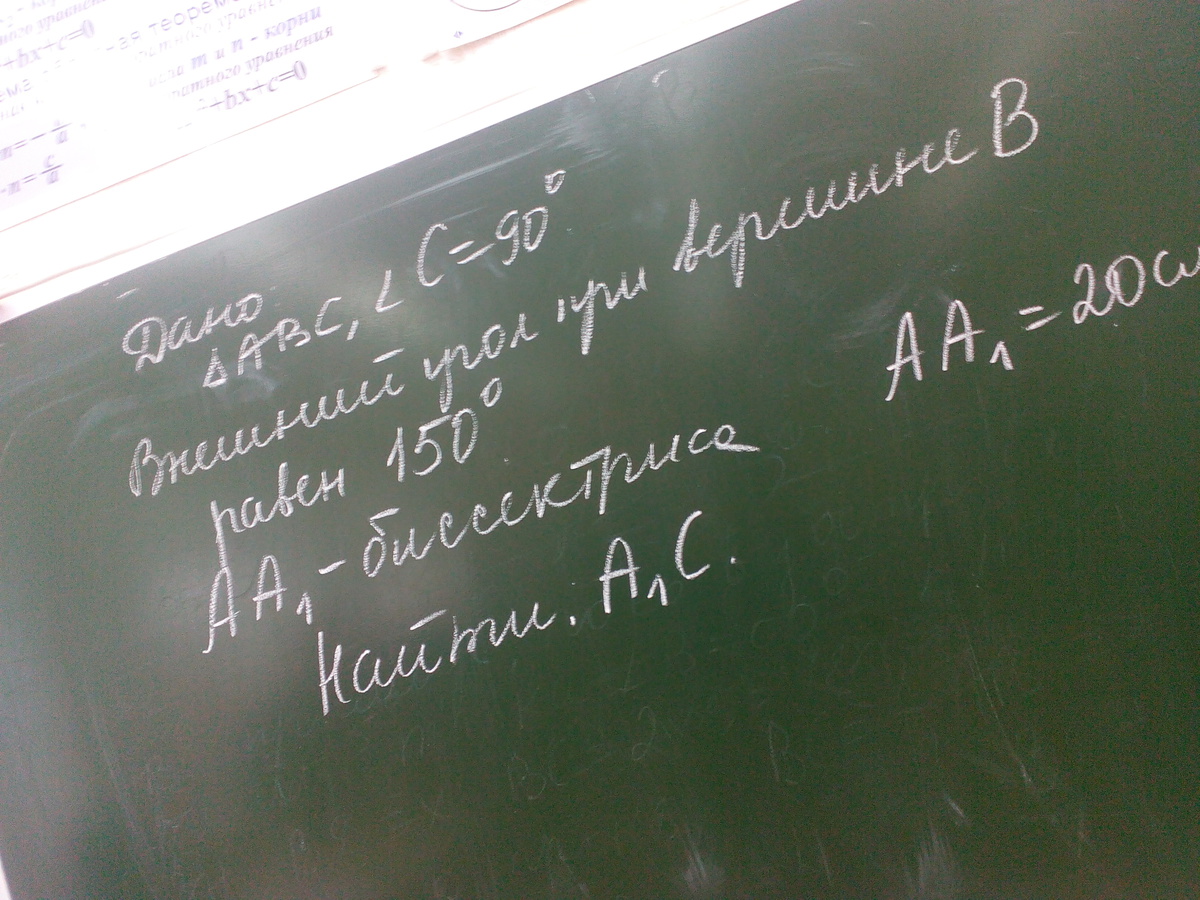 ного уравнения
+bx+c=0
ная теорема
ратного уравне
m и n - корни
ратного уравнения
+bx+c=0
Дано
ΔABC, ∠C=90°
Внешний угол при вершине B
равен 150°
AA₁ - биссектриса
AA₁ = 20см
Найти. A₁C.